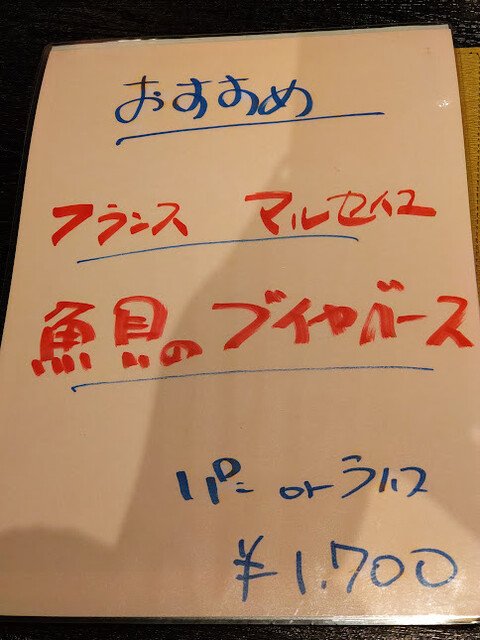 おすすめ
フランス マルセイユ
魚貝のブイヤベース
パン or ライス
¥1,700